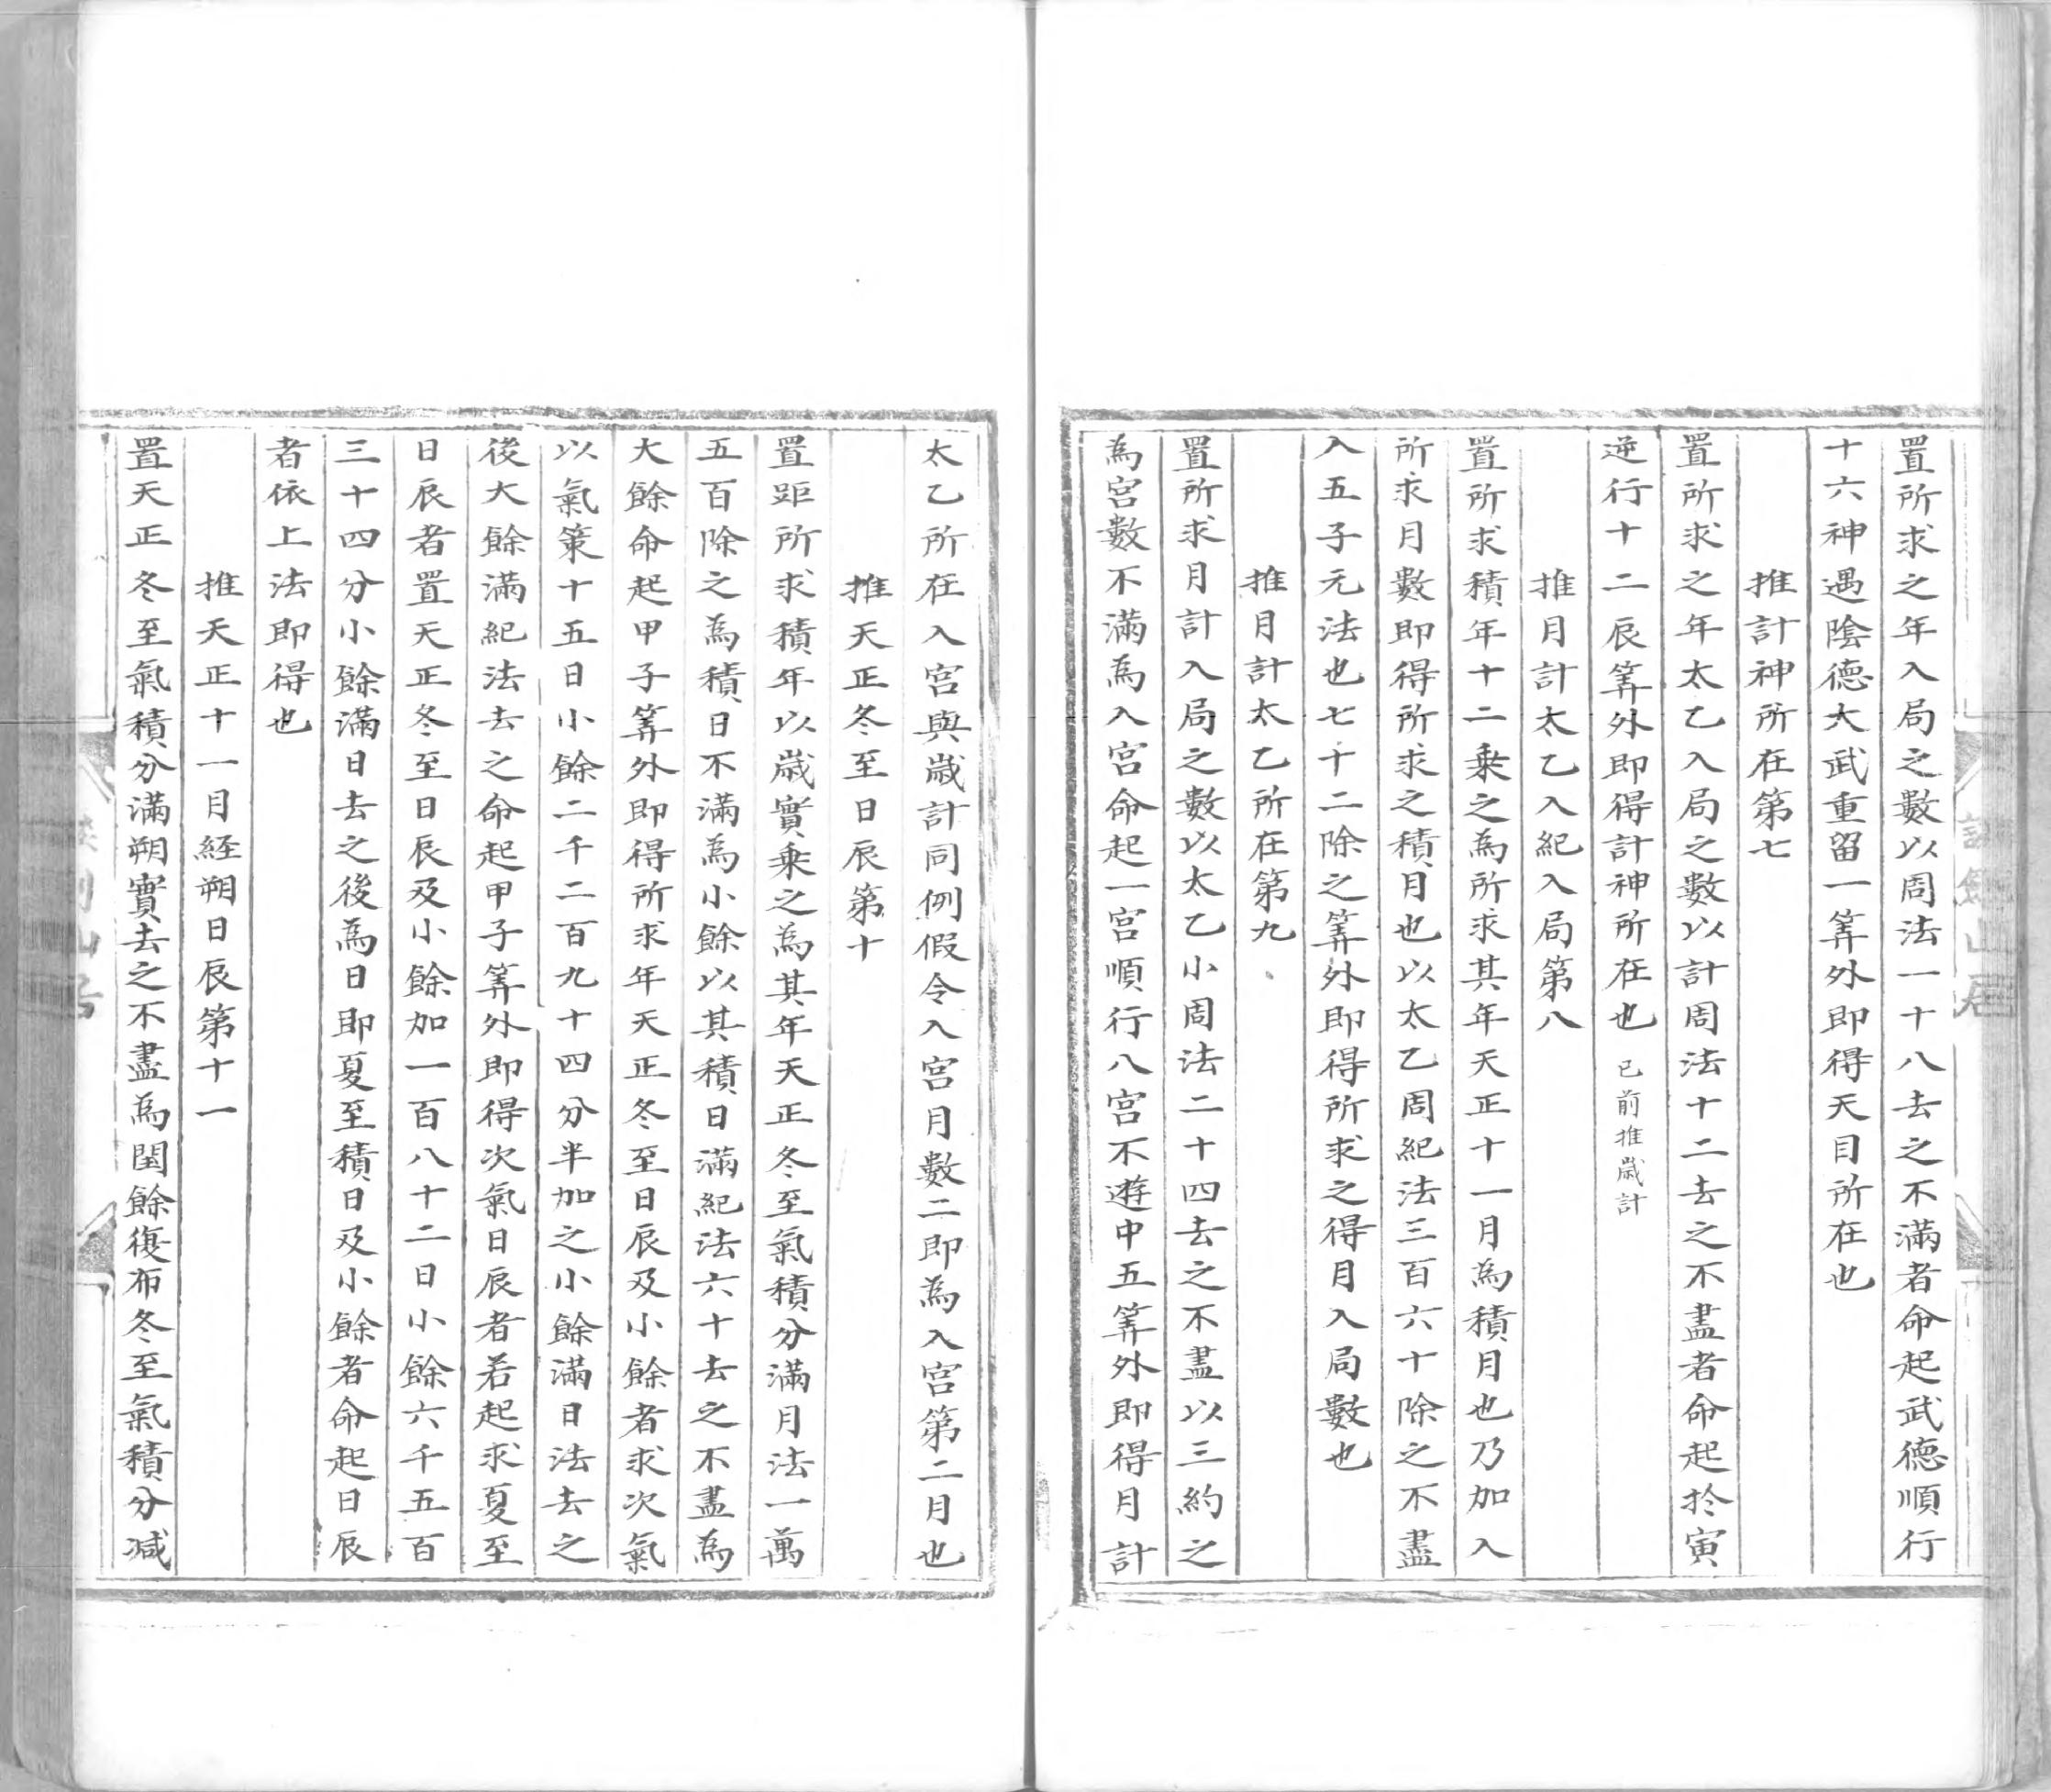 置所求之年入局之數以周法一十八去之不滿者命起武德順行
十六神遇陰德大武重留一筭外即得天目所在也
推計神所在第七
置所求之年太乙入局之數以計周法十二去之不盡者命起於寅
逆行十二辰筭外即得計神所在也已前推歲計
推月計太乙入紀入局第八
置所求積年十二乗之為所求其年天正十一月為積月也乃加入
所求月數即得所求之積月也以太乙周紀法三百六十除之不盡
入五子元法也七十二除之筭外即得所求之得月入局數也
推月計太乙所在第九
置所求月計入局之數以太乙小周法二十四去之不盡以三約之
為宮數不滿為入宮命起一宮順行八宮不遊中五筭外即得月計
太乙所在入宮與歲計同例假令入宮月數二即為入宮第二月也
推天正冬至日辰第十
置距所求積年以歲實乗之為其年天正冬至氣積分滿月法一萬
五百除之為積日不滿為小餘以其積日滿紀法六十去之不盡為
大餘命起甲子筭外即得所求年天正冬至日辰及小餘者求次氣
以氣策十五日小餘二千二百九十四分半加之小餘滿日法去之
後大餘滿紀法去之命起甲子筭外即得次氣日辰者若起求夏至
日辰者置天正冬至日辰及小餘加一百八十二日小餘六千五百
三十四分小餘滿日去之後為日即夏至積日及小餘者命起日辰
者依上法即得也
推天正十一月経朔日辰第十一
置天正冬至氣積分滿朔實去之不盡為閏餘復布冬至氣積分减